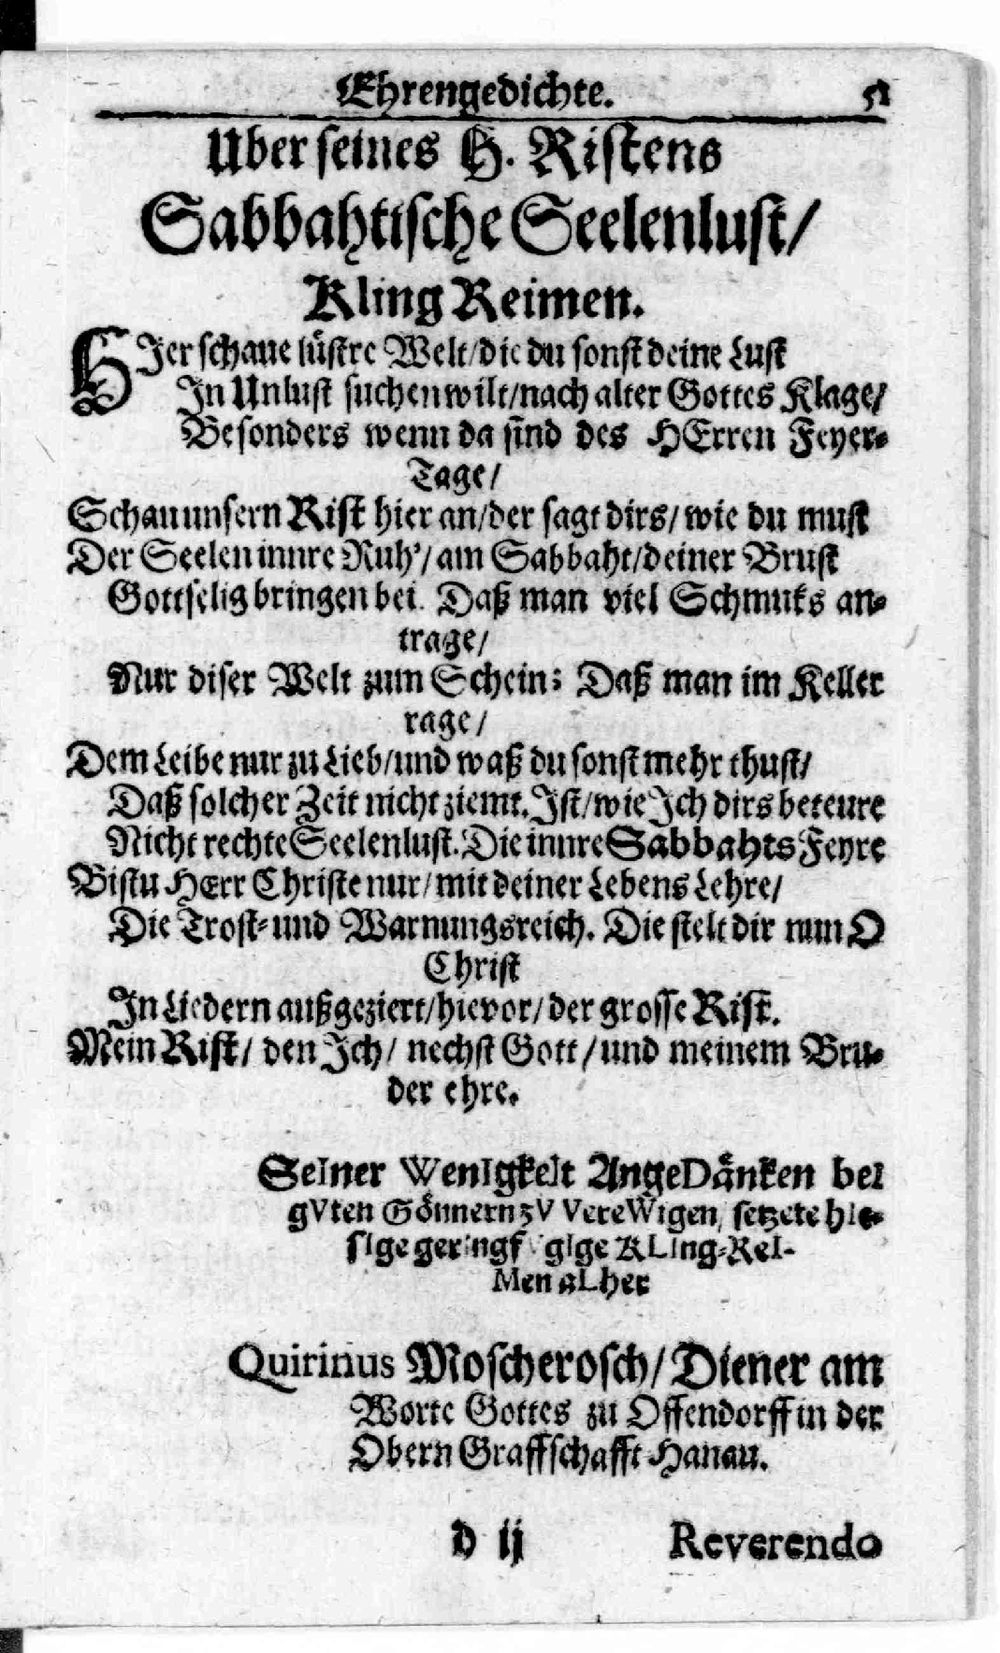 Ehrengedichte. 51
Uber seines H. Ristens
Sabbahtische Seelenlust/
Kling Reimen.
HIer schaue lüstre Welt/die du sonst deine Lust
In Unlust suchen wilt/nach alter Gottes Klage/
Besonders wenn da sind des HErren Feyer-
Tage/
Schau unsern Rist hier an/der sagt dirs/wie du must
Der Seelen innre Ruh'/am Sabbaht/deiner Brust
Gottselig bringen bei. Daß man viel Schmuks an-
trage/
Nur diser Welt zum Schein; Daß man im Keller
rage/
Dem Leibe nur zu Lieb/und waß du sonst mehr thust/
Daß solcher Zeit nicht ziemt. Ist/wie Ich dirs beteure
Nicht rechte Seelenlust. Die innre Sabbahts Feyre
Bistu HErr Christe nur/mit deiner Lebens Lehre/
Die Trost- und Warnungsreich. Die stelt dir nun O
Christ
In Liedern außgeziert/hievor/der grosse Rist.
Mein Rist/ den Ich/ nechst Gott/und meinem Bru-
der ehre.
SeIner WenIgkeIt AngeDänken beI
gVten Gönnern zV VereWigen, setzete hIe-
sIge gerIngfgIge KLIng-ReI-
Men aLher
Quirinus Moscherosch/Diener am
Worte Gottes zu Offendorff in der
Obern Graffschafft Hanau.
d ij Reverendo